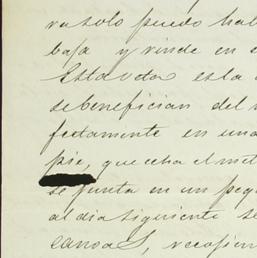 ra solo puedo hal
baja y rinde en e
Esta veta esta
se benefician del
fectamente en una
pie, que echa el met
se junta en un peq
al dia siguiente se
canoas, recojien